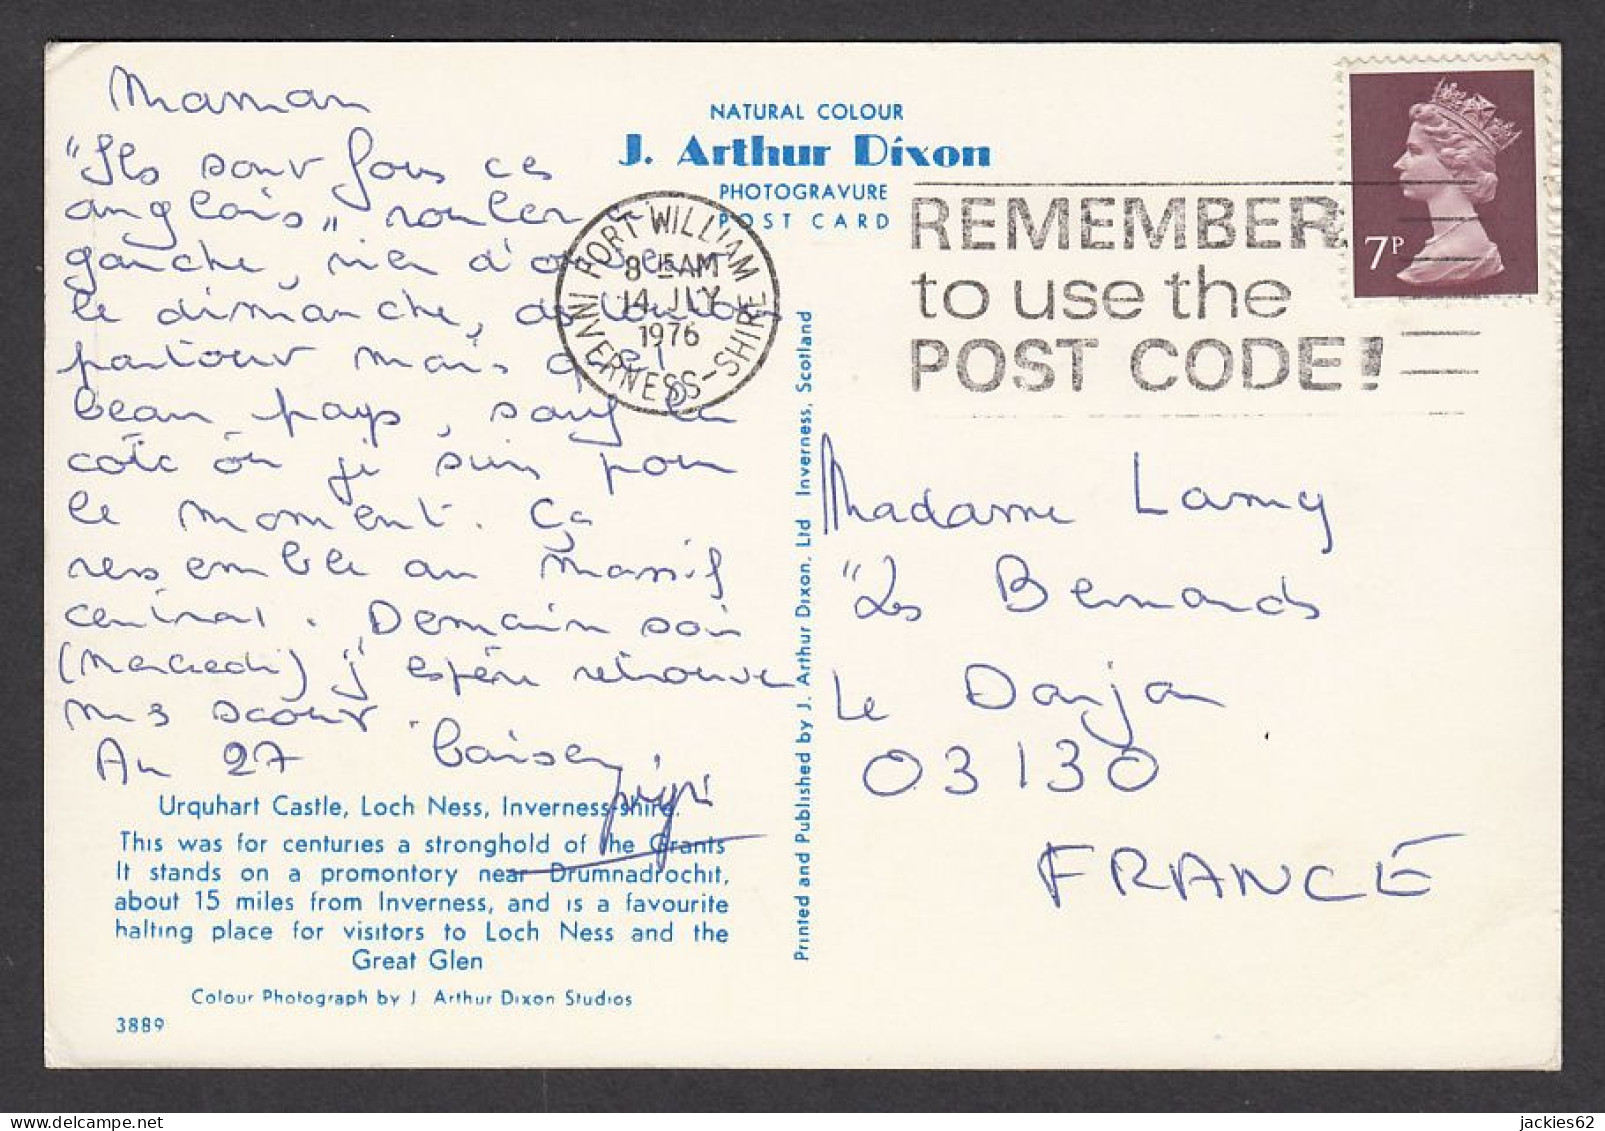 Maman
"Ils sont fous ces
anglais" rouler à
gauche, rien d'ouvert
le dimanche,
partout mais
beau pays, sauf le
coté où je suis pour
le moment. Ça
ressemble au massif
central. Demain soir
(Mercredi) j'espère retrouver
mes scouts.
Au 27 baisers
Urquhart Castle, Loch Ness, Inverness-shire.
This was for centuries a stronghold of the Grants
It stands on a promontory near Drumnadrochit,
about 15 miles from Inverness, and is a favourite
halting place for visitors to Loch Ness and the
Great Glen
Colour Photograph by J Arthur Dixon Studios
3889
NATURAL COLOUR
J. Arthur Dixon
PHOTOGRAVURE
POST CARD
FORT WILLIAM
8 15 AM
14 JLY
1976
INVERNESS-SHIRE
REMEMBER
to use the
POST CODE!
7P
Printed and Published by J. Arthur Dixon. Ltd Inverness, Scotland
Madame Lamy
"Les Bernards
Le Donjon
03130
FRANCE
jackies62